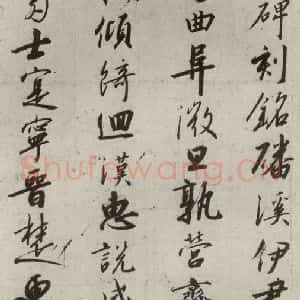 碑刻銘磻溪伊尹
曲阜微旦孰營齊
傾綺迴漢惠說感
多士寔寧晉楚更
Shufawang.CN